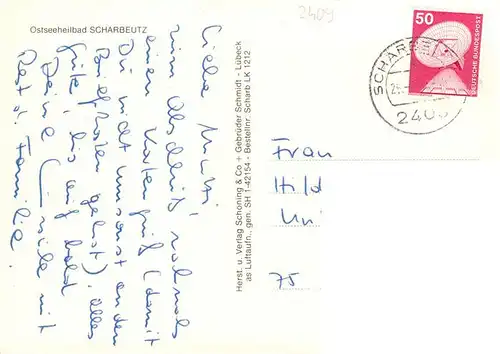 Ostseeheilbad SCHARBEUTZ
2409
Liebe Mutti,
zum Abschluß nochmals
einen Kartengruß (damit
Du nicht umsonst an den
Briefkasten gehst). Alles
Gute, bis auf bald
Deine mit
Rest d. Familie.
Herst. u. Verlag Schöning & Co + Gebrüder Schmidt - Lübeck
as Luftaufn., gen. SH 1-42154 - Bestellnr. Scharb LK 1212
50
DEUTSCHE BUNDESPOST
SCHARBEUTZ
Frau
Hild
75